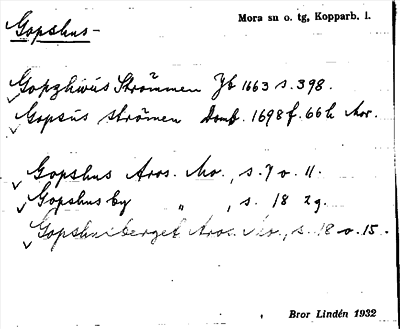 Gopshus-
Mora sn o. tg, Kopparb. l.
Gopzhwus Strömmen Jb 1663 s. 398.
Gopsus strömen Domb. 1698 f. 66 h Mor.
Gopshus Aros. Mo., s. 7 o. 11.
Gopshus by " , s. 18 29.
Gopshusberget Aros. Mo., s. 18 o. 15.
Bror Lindén 1932